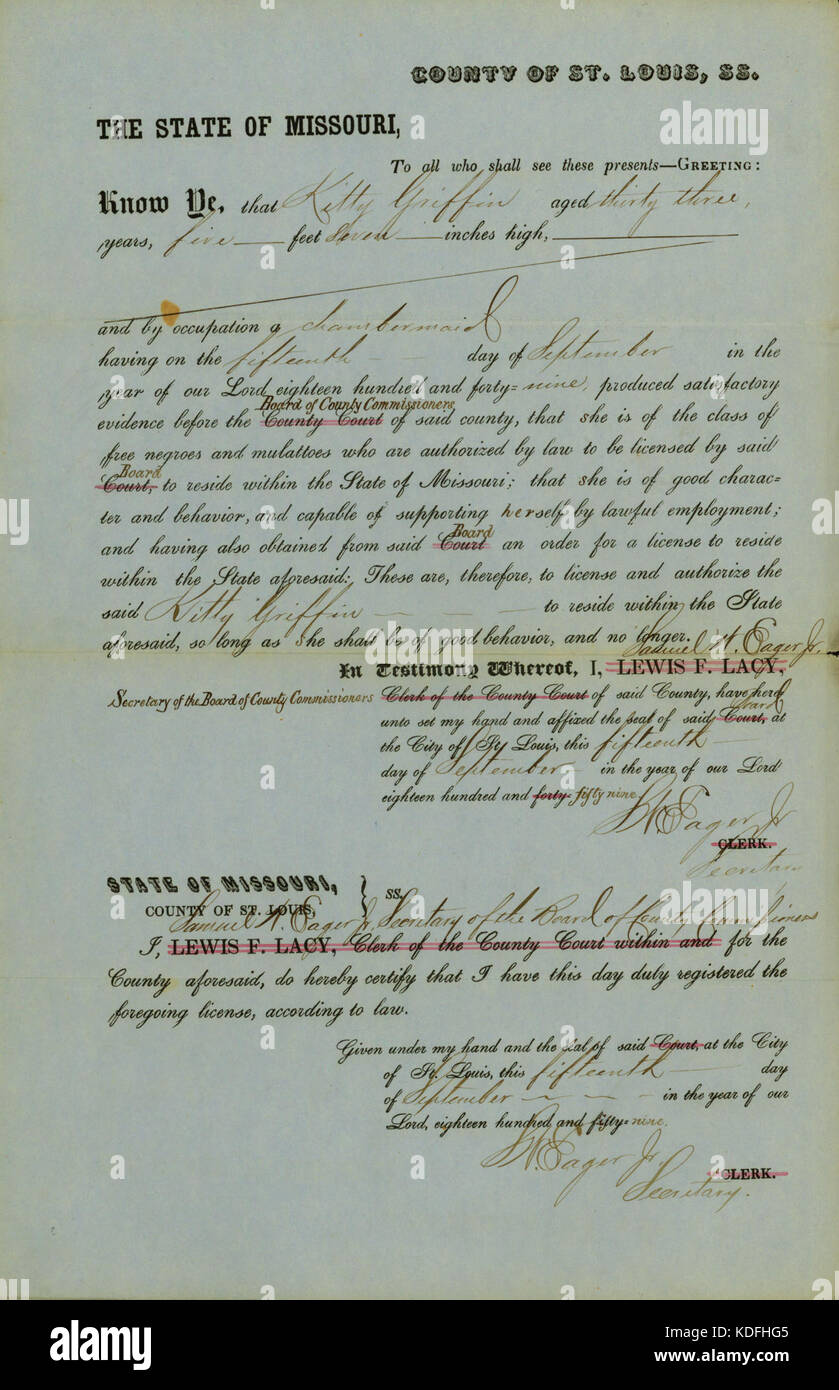 COUNTY OF ST. LOUIS, SS.
THE STATE OF MISSOURI,
To all who shall see these presents—GREETING:
Know Ye, that Kitty Griffin aged thirty three,
years, five feet Seven inches high,
and by occupation a chambermaid
having on the fifteenth day of September in the
year of our Lord eighteen hundred and forty=nine, produced satisfactory
Board of County Commissioners
evidence before the County Court of said county, that she is of the class of
free negroes and mulattoes who are authorized by law to be licensed by said
Board
Court, to reside within the State of Missouri; that she is of good charac-
ter and behavior, and capable of supporting herself by lawful employment;
Board
and having also obtained from said Court an order for a license to reside
within the State aforesaid: These are, therefore, to license and authorize the
said Kitty Griffin to reside within the State
aforesaid, so long as she shall be of good behavior, and no longer.
Samuel W. Eager Jr.
In Testimony Whereof, I, LEWIS F. LACY,
Secretary of the Board of County Commissioners Clerk of the County Court of said County, have here
Board
unto set my hand and affixed the seal of said Court, at
the City of St. Louis, this fifteenth
day of September in the year of our Lord
eighteen hundred and forty- fifty nine
S W Eager Jr
CLERK.
Secretary
STATE OF MISSOURI,
COUNTY OF ST. LOUIS, } SS.
Samuel W. Eager Jr. Secretary of the Board of County Commissioners
I, LEWIS F. LACY, Clerk of the County Court within and for the
County aforesaid, do hereby certify that I have this day duly registered the
foregoing license, according to law.
Given under my hand and the seal of said Court, at the City
of St. Louis, this fifteenth day
of September in the year of our
Lord, eighteen hundred and fifty=nine.
S W. Eager Jr
CLERK.
Secretary.
alamy
Image ID: KDFHG5
www.alamy.com